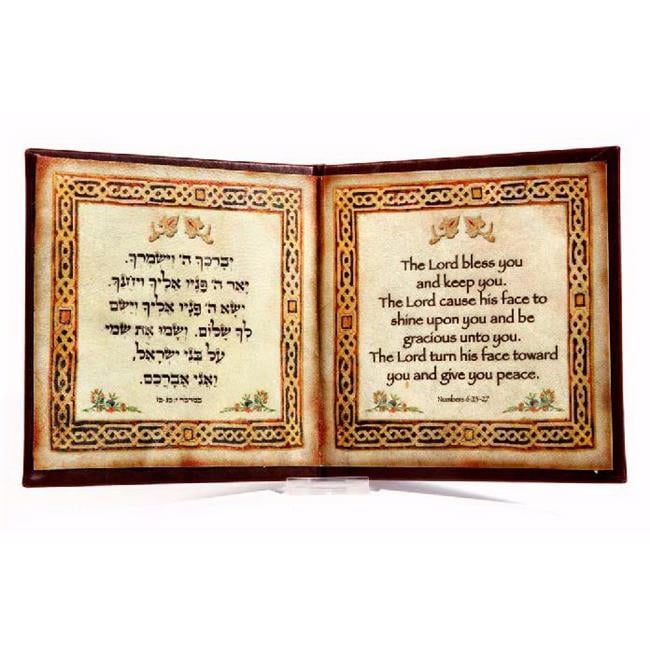 יְבָרֶכְךָ ה' וְיִשְׁמְרֶךָ.
יָאֵר ה' פָּנָיו אֵלֶיךָ וִיחֻנֶּךָּ.
יִשָּׂא ה' פָּנָיו אֵלֶיךָ וְיָשֵׂם
לְךָ שָׁלוֹם. וְשָׂמוּ אֶת שְׁמִי
עַל בְּנֵי יִשְׂרָאֵל,
וַאֲנִי אֲבָרְכֵם.
במדבר ו: כג-כז
The Lord bless you
and keep you.
The Lord cause his face to
shine upon you and be
gracious unto you.
The Lord turn his face toward
you and give you peace.
Numbers 6:23-27